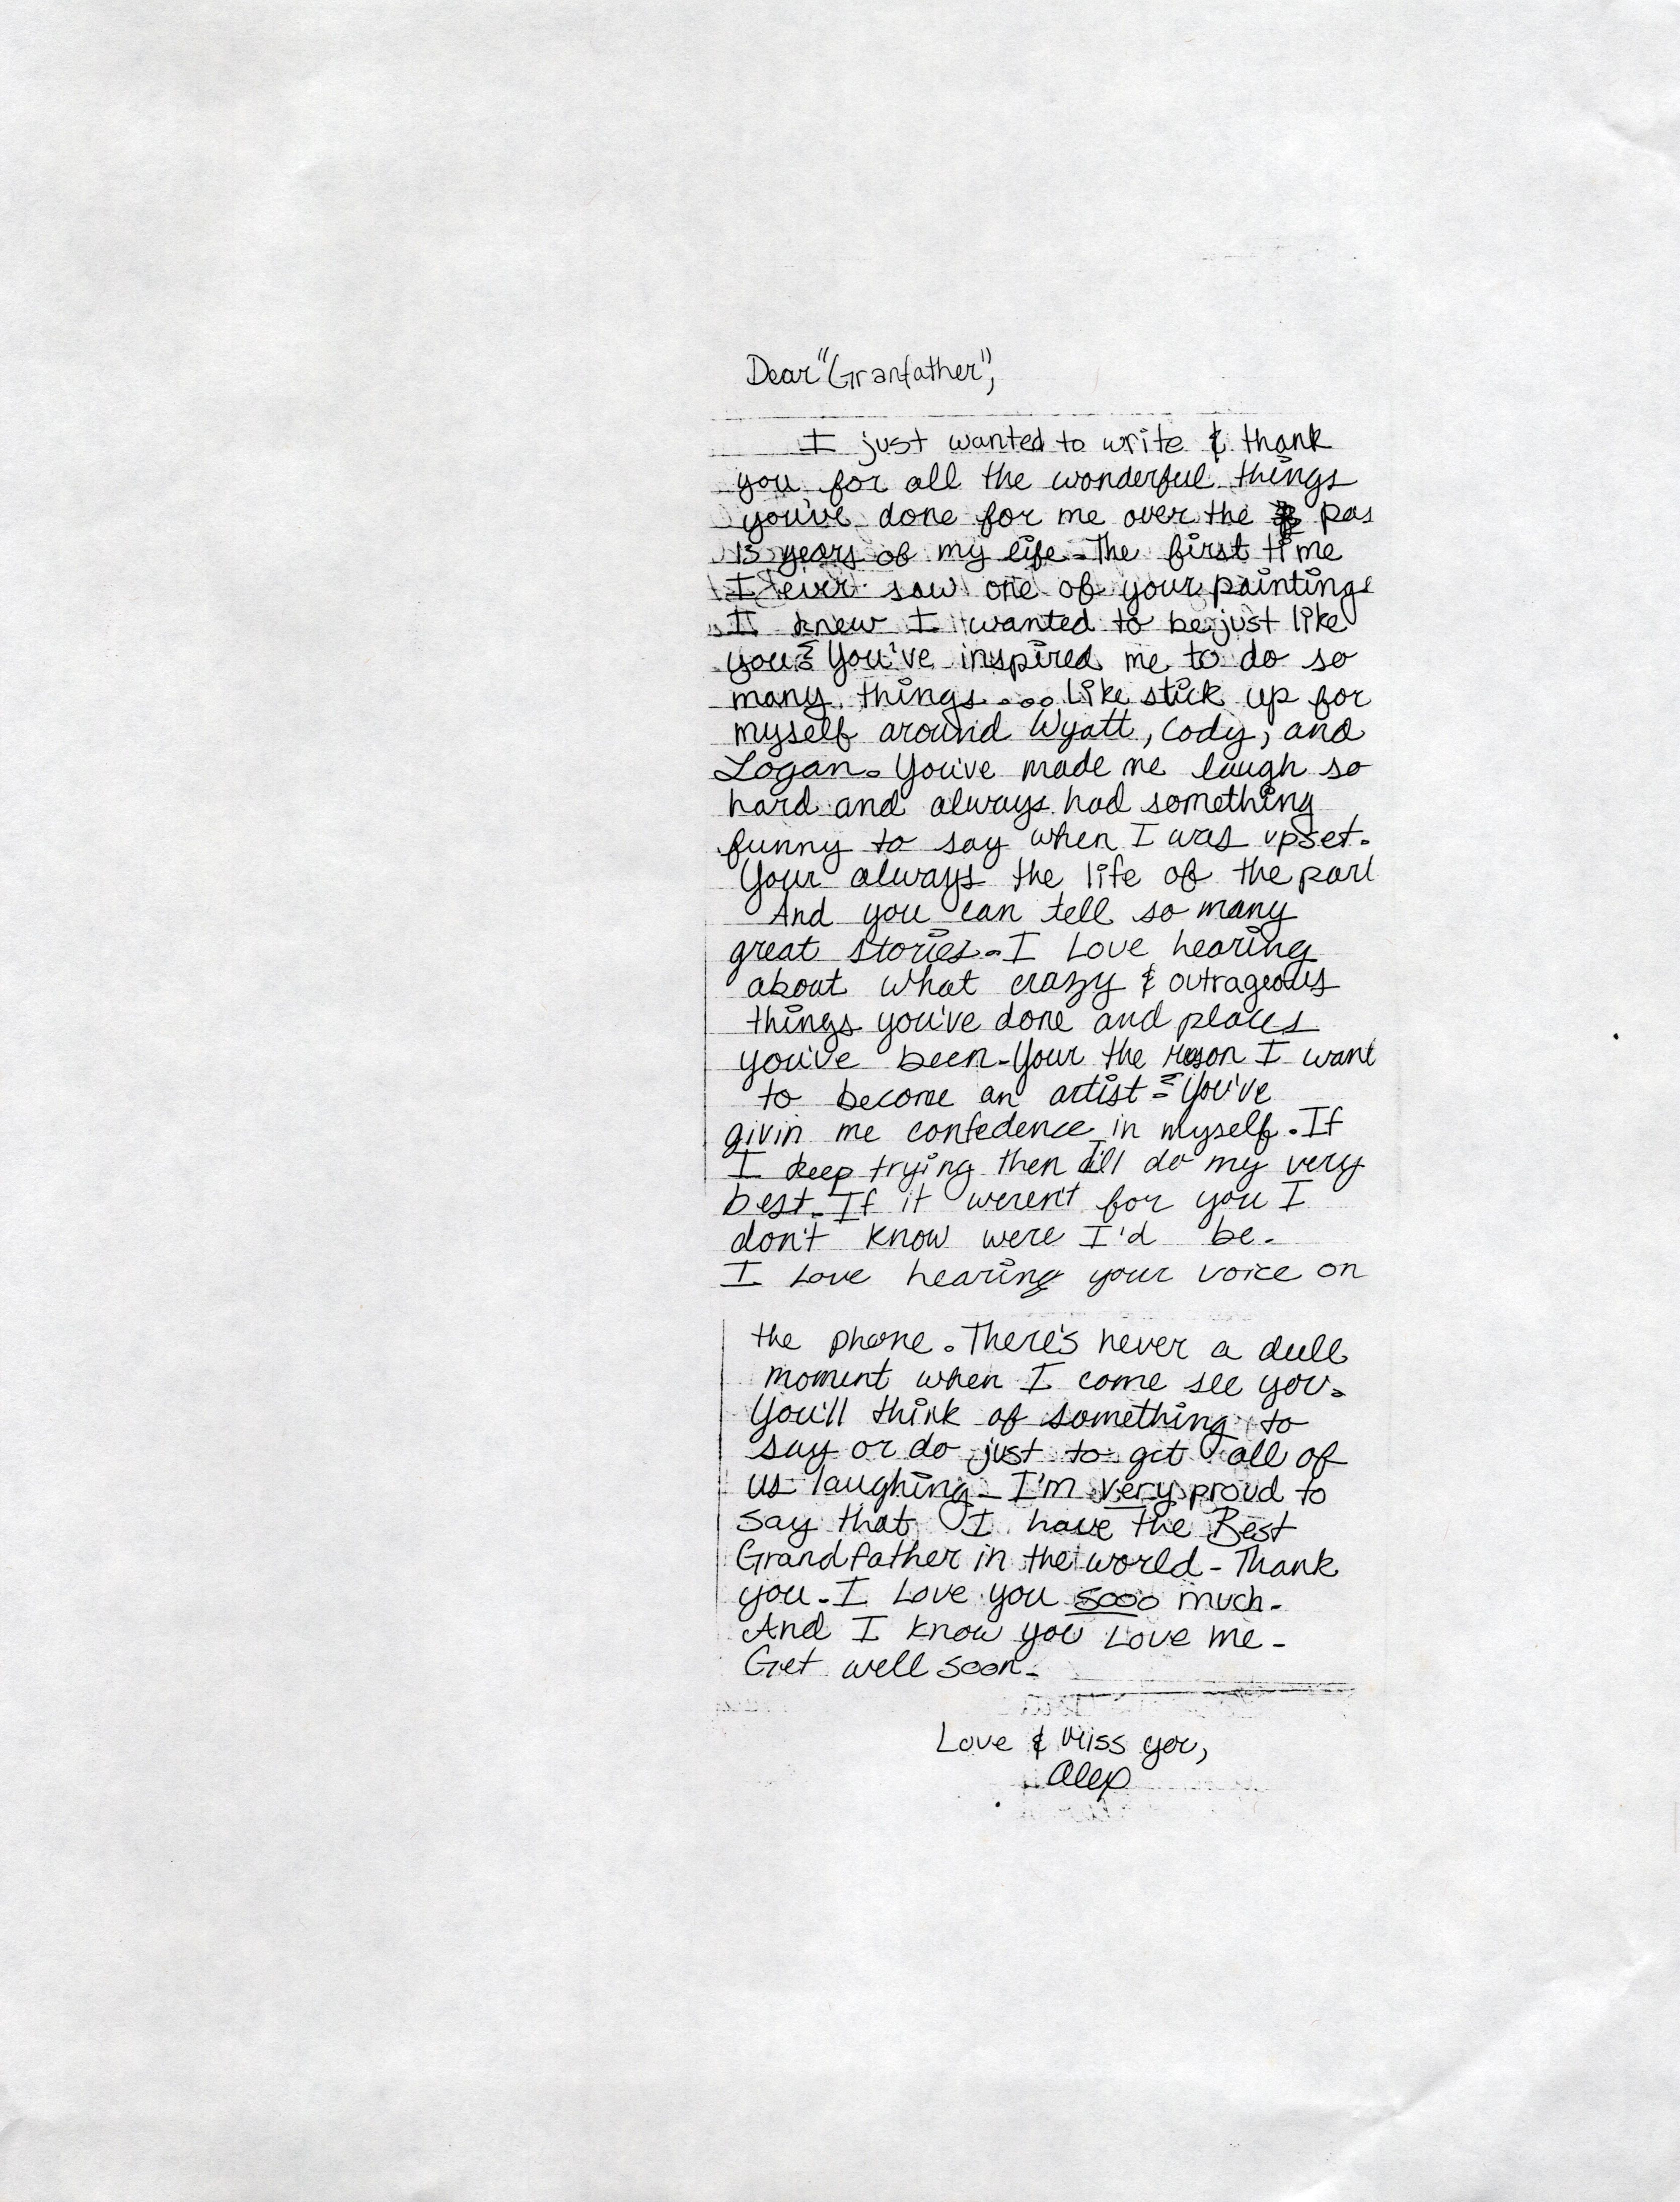 Dear "Granfather",
I just wanted to write & thank
you for all the wonderful things
you've done for me over the pas
13 years of my life. The first time
I ever saw one of your paintings
I knew I wanted to be just like
you! You've inspired me to do so
many things... Like stick up for
myself around Wyatt, Cody, and
Logan. You've made me laugh so
hard and always had something
funny to say when I was upset.
Your always the life of the part
And you can tell so many
great stories. I Love hearing
about what crazy & outrageous
things you've done and places
you've been. Your the reason I want
to become an artist! You've
givin me confedence in myself. If
I keep trying then I'll do my very
best. If it weren't for you I
don't know were I'd be.
I Love hearing your voice on
the phone. There's never a dull
moment when I come see you.
You'll think of something to
say or do just to get all of
us laughing. I'm very proud to
say that I have the Best
Grandfather in the world. Thank
you. I Love you sooo much.
And I know you Love me.
Get well soon.
Love & Miss you,
Alex